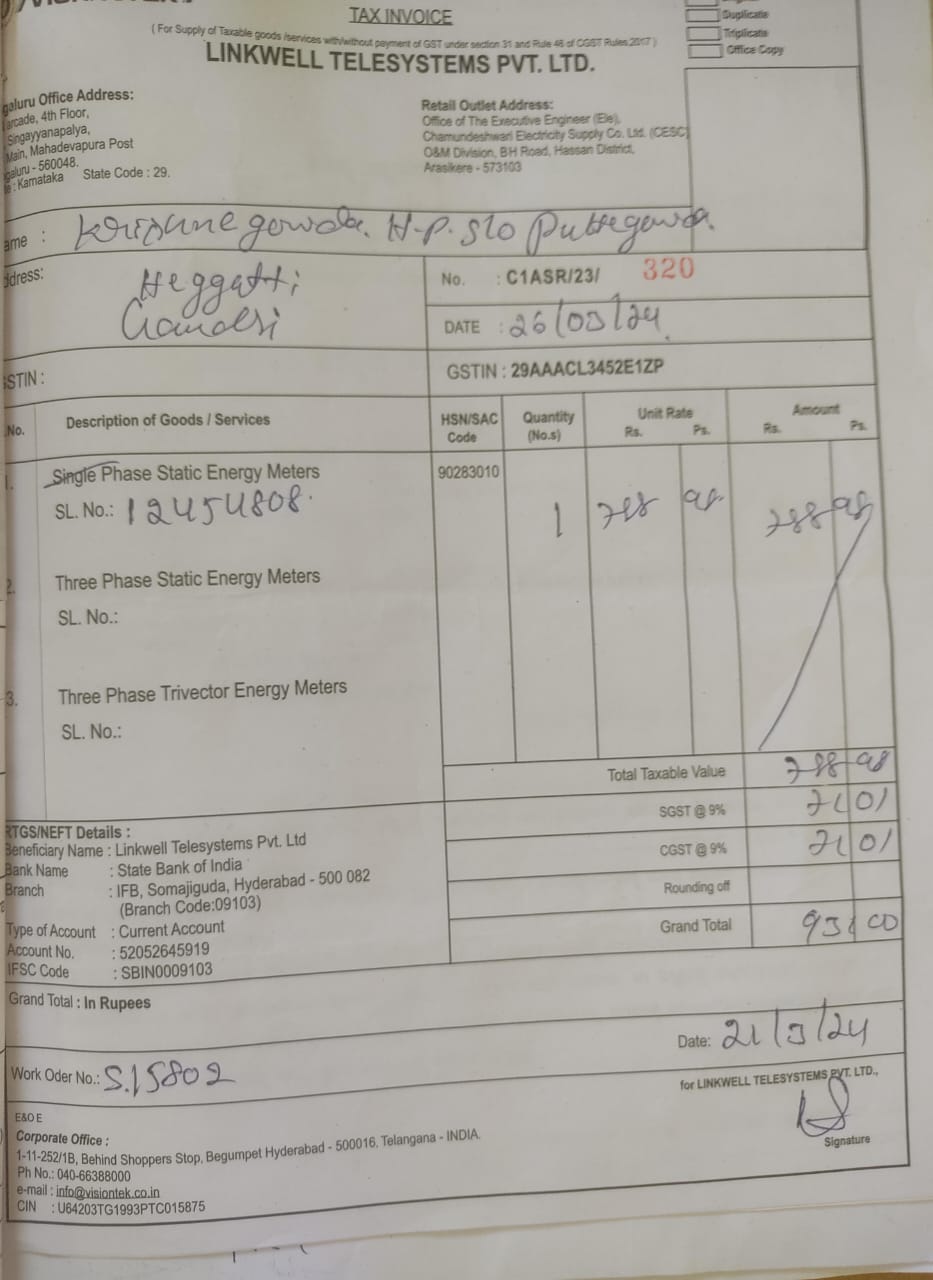 TAX INVOICE
( For Supply of Taxable goods /services with/without payment of GST under section 31 and Rule 46 of CGST Rules 2017 )
LINKWELL TELESYSTEMS PVT. LTD.
Duplicate
Triplicate
Office Copy
galuru Office Address:
arcade, 4th Floor,
Singayyanapalya,
Main, Mahadevapura Post
galuru - 560048.
: Karnataka State Code : 29.
Retail Outlet Address:
Office of The Executive Engineer (Ele),
Chamundeshwari Electricity Supply Co. Ltd. (CESC)
O&M Division, BH Road, Hassan District,
Arasikere - 573103
ame : Krishnegowda. H.P. S/o Puttegowda.
ddress: Heggatti
Gandsi
No. : C1ASR/23/ 320
DATE : 26/03/24
STIN :
GSTIN : 29AAACL3452E1ZP
No. Description of Goods / Services HSN/SAC Code Quantity (No.s) Unit Rate Rs. Ps. Amount Rs. Ps.
1. Single Phase Static Energy Meters 90283010
SL. No.: 12454808. 1 788 98 788 98
2. Three Phase Static Energy Meters
SL. No.:
3. Three Phase Trivector Energy Meters
SL. No.:
Total Taxable Value 788 98
SGST @ 9% 71 01
CGST @ 9% 71 01
Rounding off
Grand Total 931 00
RTGS/NEFT Details :
Beneficiary Name : Linkwell Telesystems Pvt. Ltd
Bank Name : State Bank of India
Branch : IFB, Somajiguda, Hyderabad - 500 082
(Branch Code:09103)
Type of Account : Current Account
Account No. : 52052645919
IFSC Code : SBIN0009103
Grand Total : In Rupees
Date: 21/3/24
Work Oder No.: S.15802
for LINKWELL TELESYSTEMS PVT. LTD.,
Signature
E&O E
Corporate Office :
1-11-252/1B, Behind Shoppers Stop, Begumpet Hyderabad - 500016, Telangana - INDIA.
Ph No.: 040-66388000
e-mail : info@visiontek.co.in
CIN : U64203TG1993PTC015875